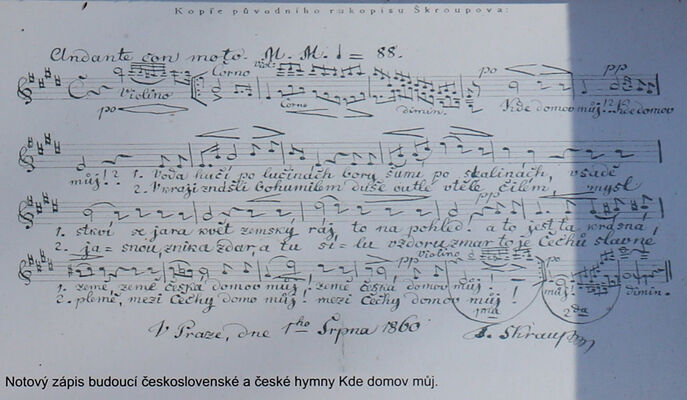 Kopie původního rukopisu Škroupova:
Andante con moto. M. M. ♩ = 88.
Viol: Corno po pp
Violino
po Corno dimin. Kde domov můj!? Kde domov
můj!? 1. Voda hučí po lučinách bory šumí po skalinách, v sadě
2. V kraji znášli bohumilém duše outlé v těle čilém, mysl
pp
1. stkví se jara květ zemský ráj to na pohled. a to jest ta krásná
2. ja=snou, znik a zdar, a tu sí=lu vzdoru zmar to je Čechů slavné
pp violino po
1. země, země česká domov můj, země česká domov můj!
můj! dimin.
2. plémě, mezi Čechy domov můj! mezi Čechy domov můj!
1ma 2da
V Praze, dne 1ho Srpna 1860 F. Škroup
Notový zápis budoucí československé a české hymny Kde domov můj.